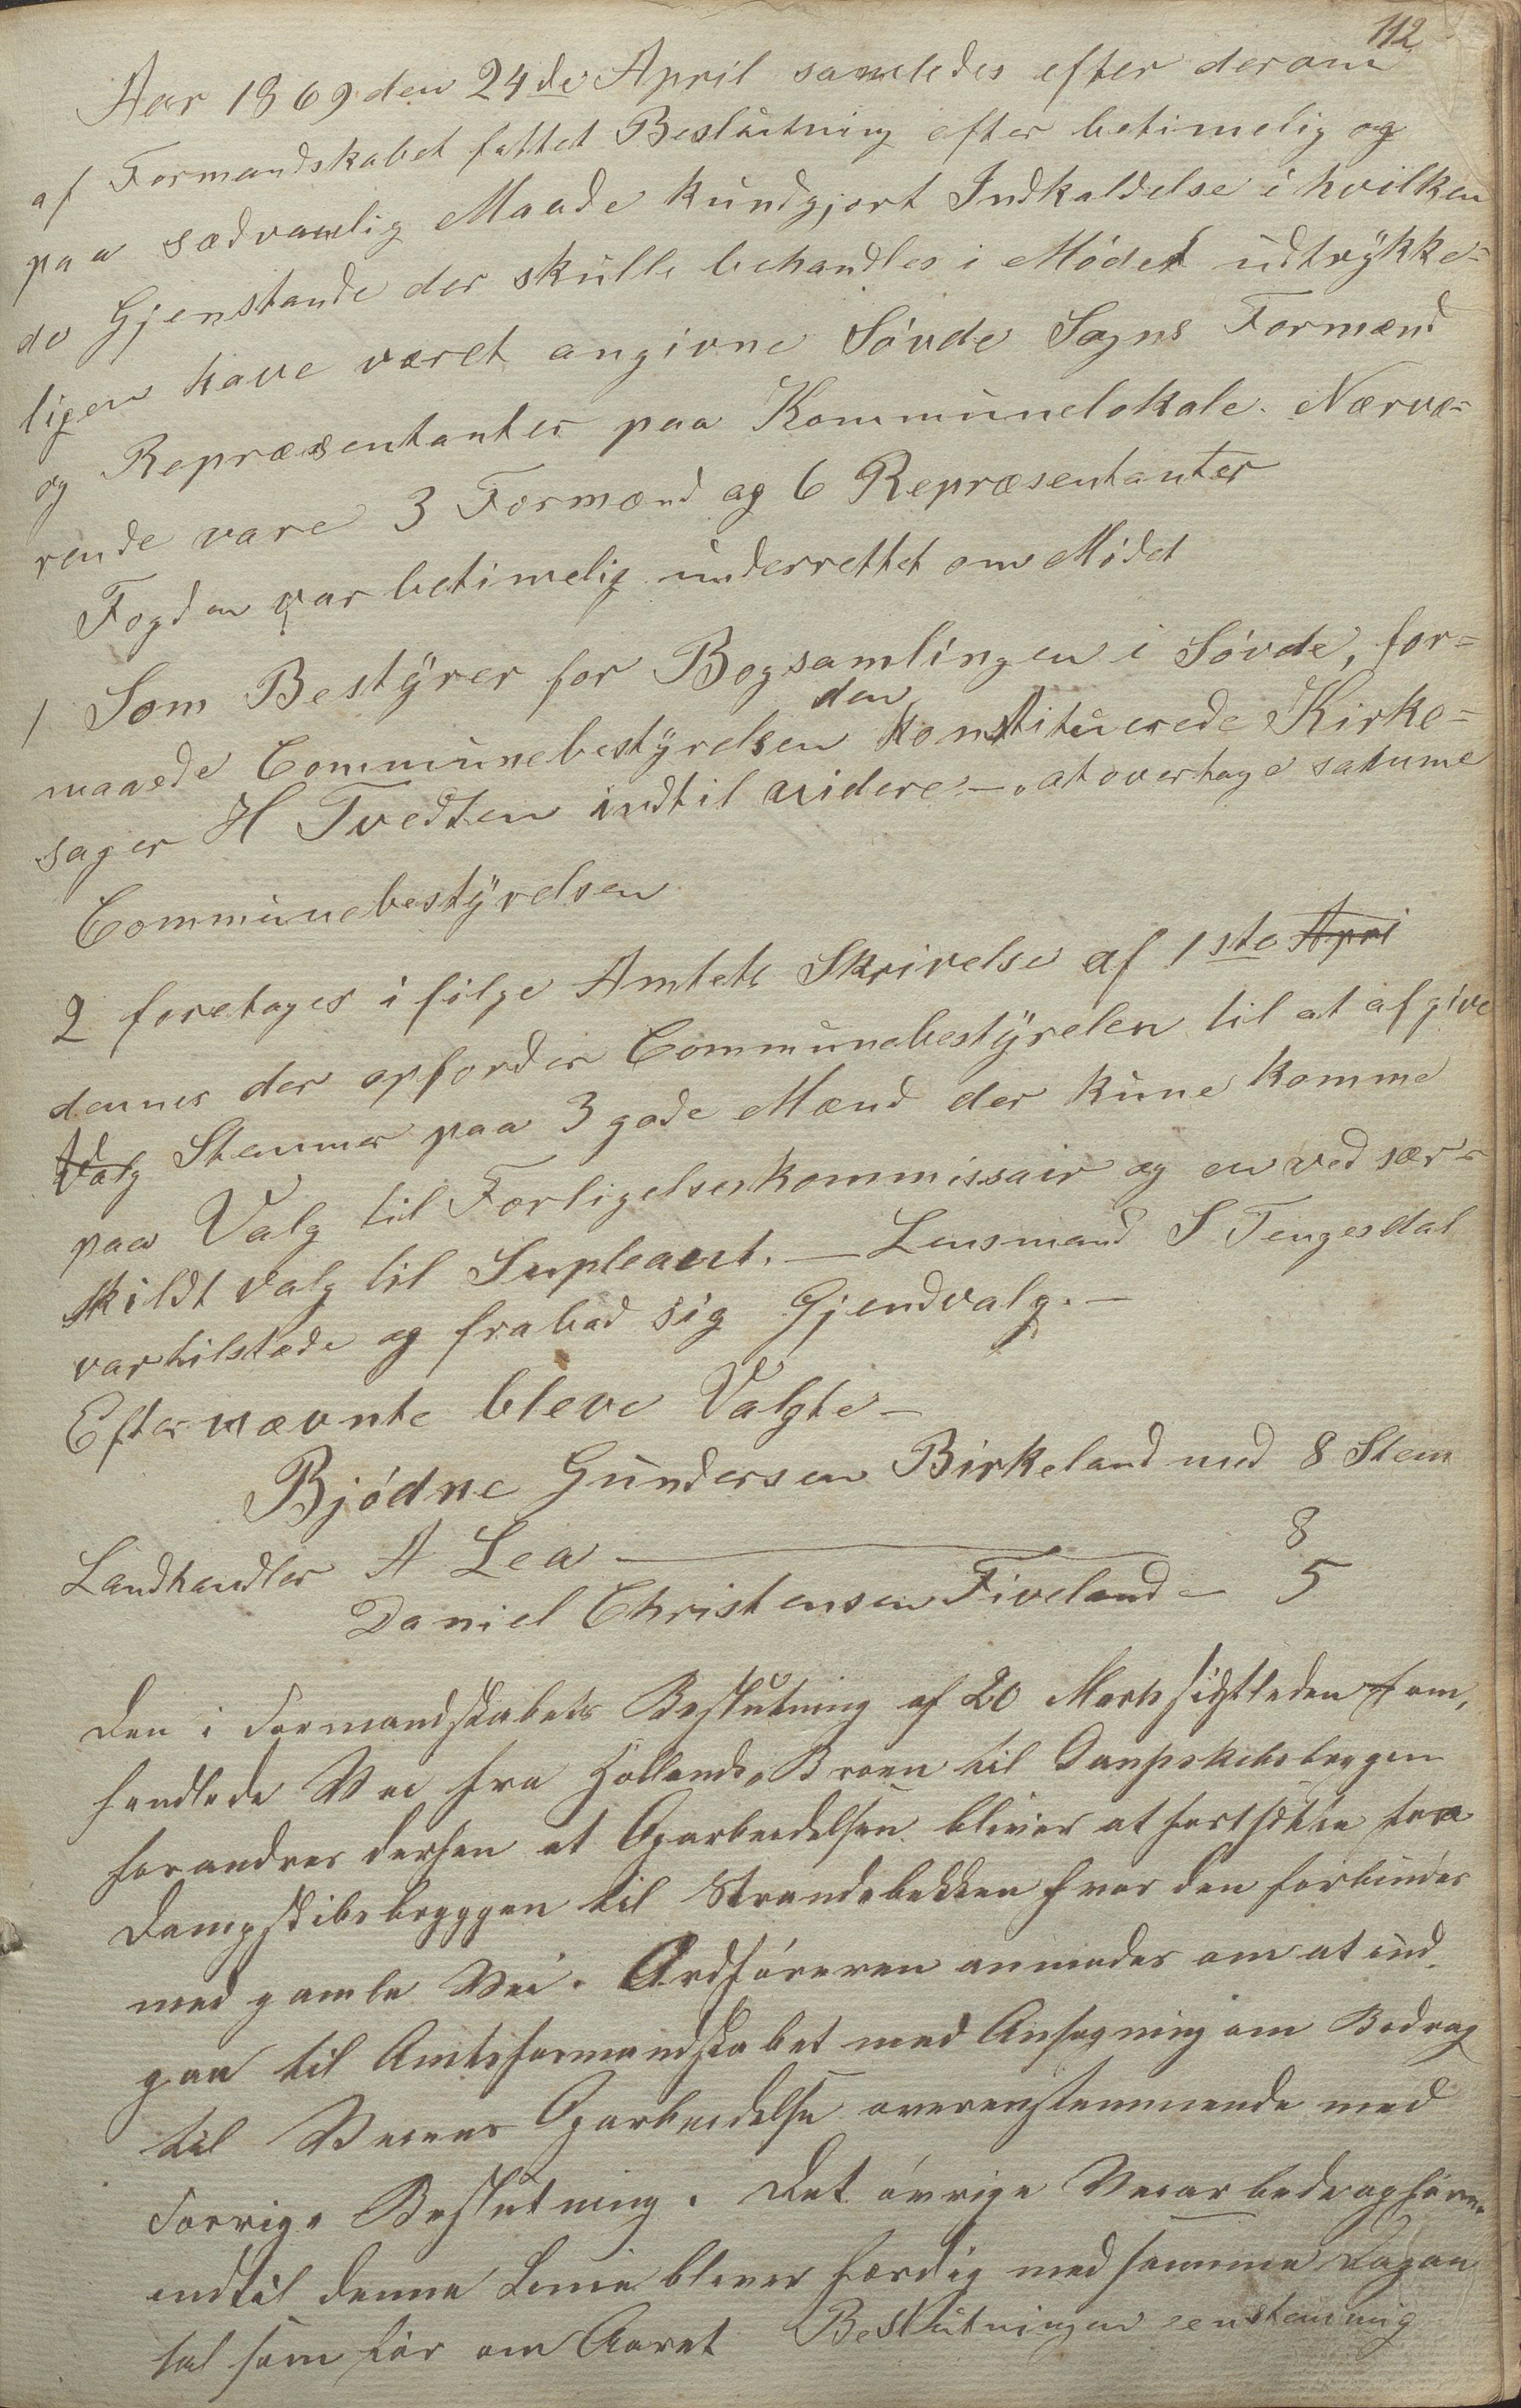 112
Aar 1869 den 24de April samledes efter derom
af Formandskabet fattet Beslutning efter betimelig og
paa sædvanlig Maade kundgjort Indkaldelse i hvilken
de Gjenstande der skulle behandles i Mödet udtrykke=
ligen have været angivne Sövde Sogns Formænd
og Repræsentanter paa Kommunelokale. Nærvæ=
rende vare 3 Formænd og 6 Repræsentanter
Fogden var betimelig underrettet om Mödet
1 Som Bestÿrer for Bogsamlingen i Sövde, for=
den
maaede Communebestÿrelsen konstituerede Kirke=
sager H Tvedten indtil avidere - at overtage samme
Communebestÿrelsen
2 foretages i fölge Amtets Skrivelse af 1ste Apri
dennes der opforder Communebestÿrelen til at afgive
Valg Stemmer paa 3 gode Mænd der kune komme
paa Valg til Forligelseskommissair og en ved sær=
skildt valg til Supleant. - Lensmand S Tengesdal
var tilstæde og frabad sig Gjendvalg. -
Efternævnte bleve Valgte -
Bjödne Gundersen Birkeland med 8 Stem
Landhandler A Lea — 8
Daniel Christensen Fiveland - 5
Den i Formandskabets Beslutning af 20 Marts sidstleden om,
handlede Vei fra Hollands Broen til Dampskibsbryggen
forandres derhen at Oparbeidelsen bliver at fortsætte fra
Dampskibsbryggen til Strandebekken hvor den forbindes
med gamle Vei. Ordföreren anmodes om at ind
gaa til Amtsformandskabet med Ansøgning om Bidrag
til Veiens Oparbeidelse overenstemmende med
Forrige Beslutning. Det övrige Veiarbeide
indtil denne Linie bliver færdig med samme Dagan
tal som för om Aaret Beslutningen eenstemmig